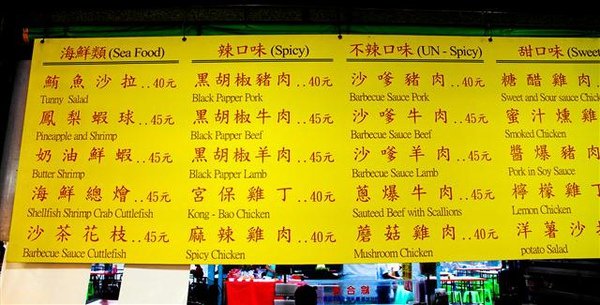 海鮮類 (Sea Food)
鮪魚沙拉..40元
Tunny Salad
鳳梨蝦球..45元
Pineapple and Shrimp
奶油鮮蝦..45元
Butter Shrimp
海鮮總燴..45元
Shellfish Shrimp Crab Cuttlefish
沙茶花枝..45元
Barbecue Sauce Cuttlefish
辣口味 (Spicy)
黑胡椒豬肉..40元
Black Papper Pork
黑胡椒牛肉..45元
Black Papper Beef
黑胡椒羊肉..45元
Black Papper Lamb
宮保雞丁..40元
Kong - Bao Chicken
麻辣雞肉..40元
Spicy Chicken
不辣口味 (UN - Spicy)
沙爹豬肉..40元
Barbecue Sauce Pork
沙爹牛肉..45元
Barbecue Sauce Beef
沙爹羊肉..45元
Barbecue Sauce Lamb
蔥爆牛肉..45元
Sauteed Beef with Scallions
蘑菇雞肉..40元
Mushroom Chicken
甜口味 (Sweet
糖醋雞肉
Sweet and Sour sauce Chick
蜜汁燻雞
Smoked Chicken
醬爆豬肉
Pork in Soy Sauce
檸檬雞
Lemon Chicken
洋薯沙
potato Salad